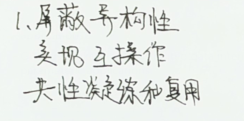 1、屏蔽异构性
实现互操作
共性凝练和复用